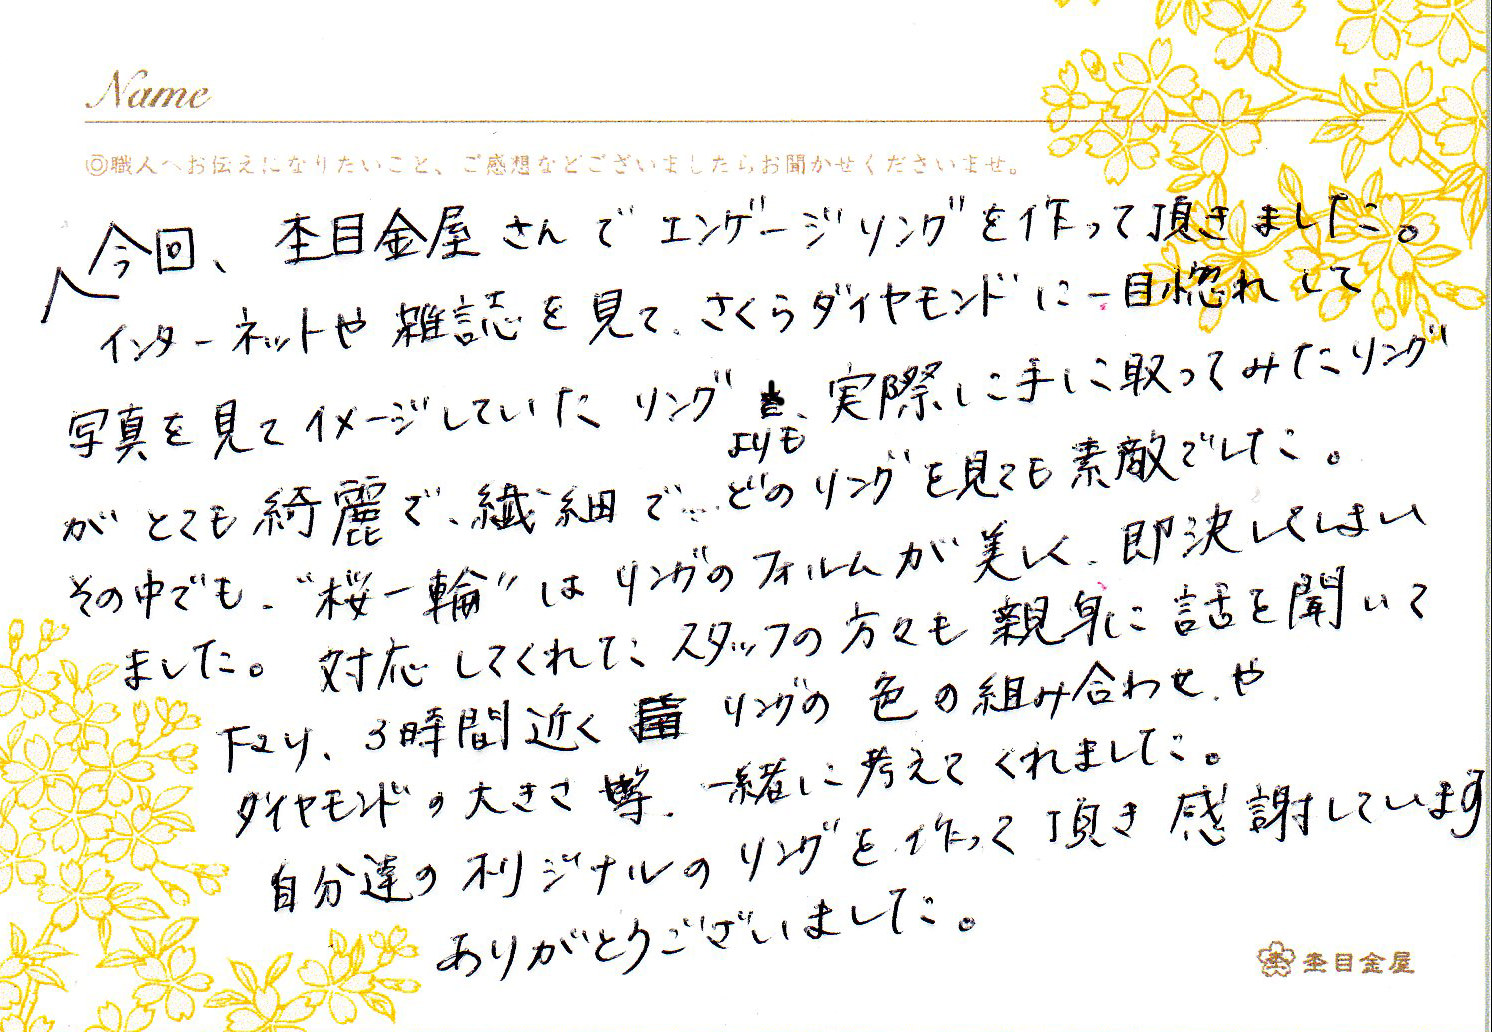 Name
◎職人へお伝えになりたいこと、ご感想などございましたらお聞かせくださいませ。
今回、杢目金屋さんでエンゲージリングを作って頂きました。
インターネットや雑誌を見て、さくらダイヤモンドに一目惚れして
写真を見てイメージしていたリングよりも、実際に手に取ってみたリング
がとても綺麗で、繊細で…どのリングを見ても素敵でした。
その中でも、“桜一輪”はリングのフォルムが美しく、即決してしまい
ました。対応してくれたスタッフの方々も親身に話を聞いて
下さり、3時間近くリングの色の組み合わせ、や
ダイヤモンドの大きさ等、一緒に考えてくれました。
自分達のオリジナルのリングを作って頂き感謝しています
ありがとうございました。
杢目金屋